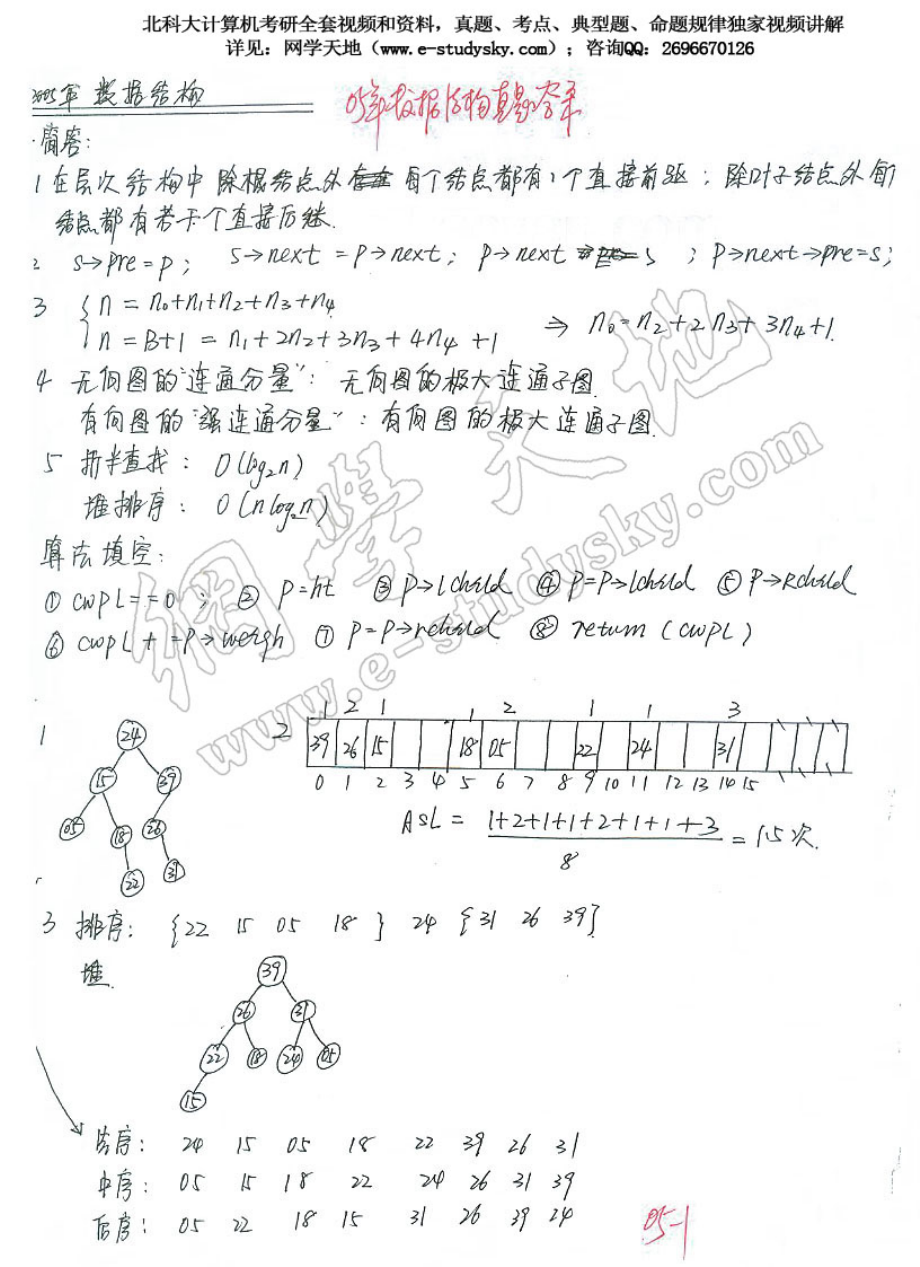 北科大计算机考研全套视频和资料，真题、考点、典型题、命题规律独家视频讲解
详见：网学天地（www.e-studysky.com）；咨询QQ：2696670126
2005年 数据结构
05年数据结构真题答案
简答：
1 在层次结构中 除根结点外 每个结点都有1个直接前驱；除叶子结点外每
结点都有若干个直接后继.
2 s→pre=p； s→next = p→next； p→next = s ；p→next→pre=s；
3 { n = n₀+n₁+n₂+n₃+n₄
n = B+1 = n₁+2n₂+3n₃+4n₄+1 ⇒ n₀=n₂+2n₃+3n₄+1.
4 无向图的“连通分量”： 无向图的极大连通子图.
有向图的“强连通分量”：有向图的极大连通子图.
5 折半查找： O(log₂n)
堆排序： O(nlog₂n)
算法填空：
① cwpL==0 ； ② P=ht ③ P→lchild ④ P=P→lchild ⑤ P→Rchild
⑥ cwpL+=P→weigh ⑦ P=P→rchild ⑧ return (cwpL)
網學天地
www.e-studysky.com
1
24
15 39
05 18 26
22 31
2
1 2 1 1 2 1 1 3
39 26 15 18 05 22 24 31
0 1 2 3 4 5 6 7 8 9 10 11 12 13 14 15
ASL = 1+2+1+1+2+1+1+3 / 8 = 1.5次.
3 排序： {22 15 05 18 } 24 {31 26 39}
堆.
39
26 31
22 18 24 05
15
先序： 24 15 05 18 22 39 26 31
中序： 05 15 18 22 24 26 31 39
后序： 05 22 18 15 31 26 39 24
05-1